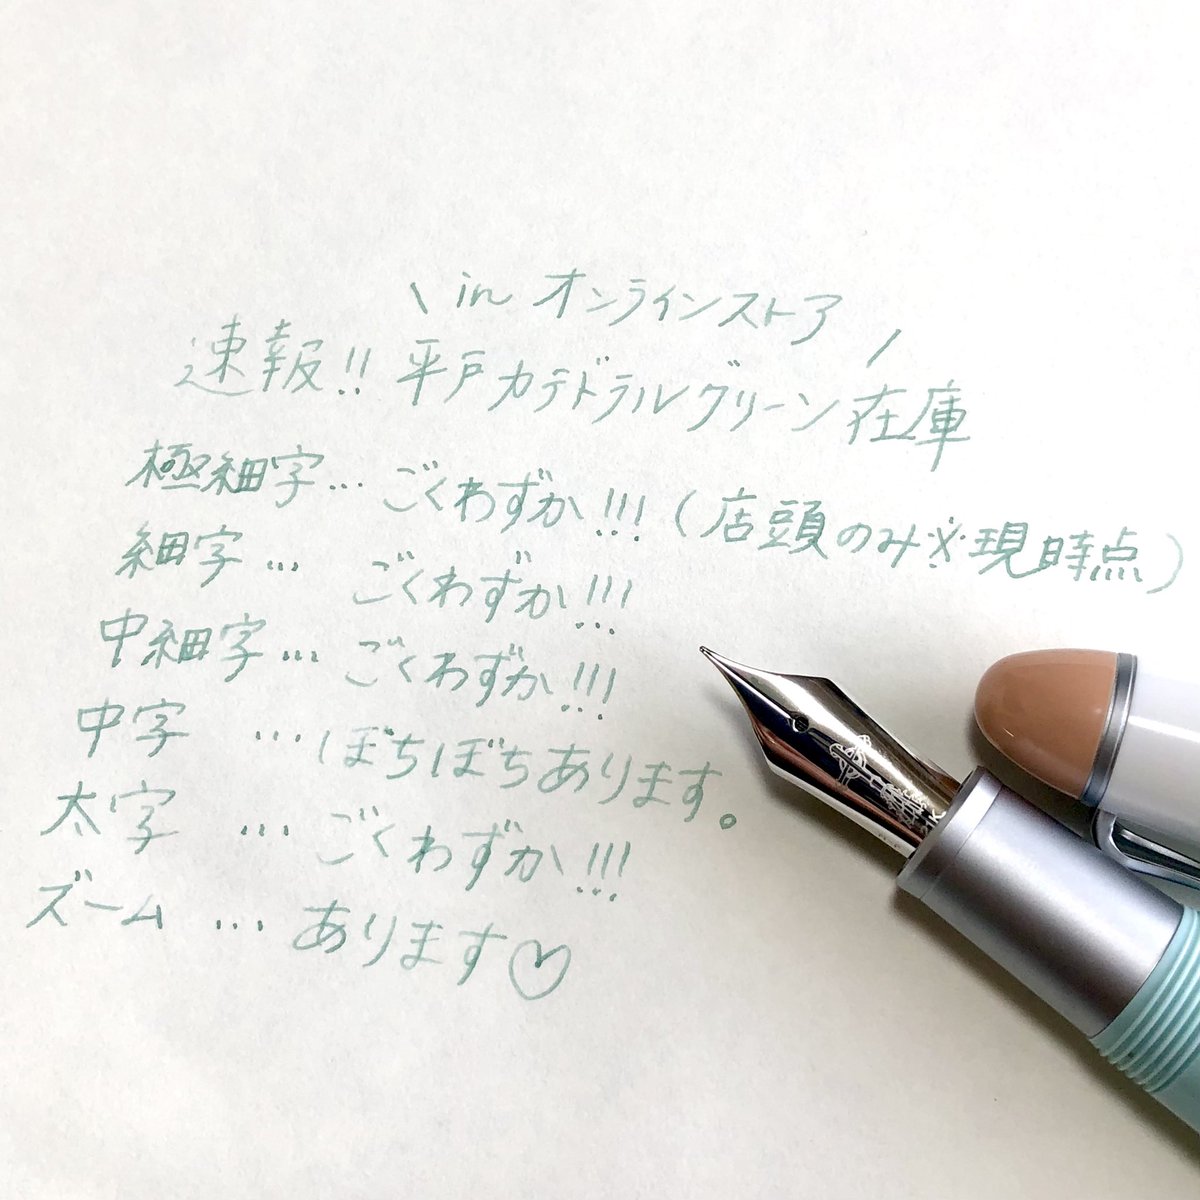 \ in オンラインストア /
速報!! 平戸カテドラルグリーン在庫
極細字… ごくわずか!!! (店頭のみ※現時点)
細字… ごくわずか!!!
中細字… ごくわずか!!!
中字 … ぼちぼちあります。
太字 … ごくわずか!!!
ズーム … あります♡